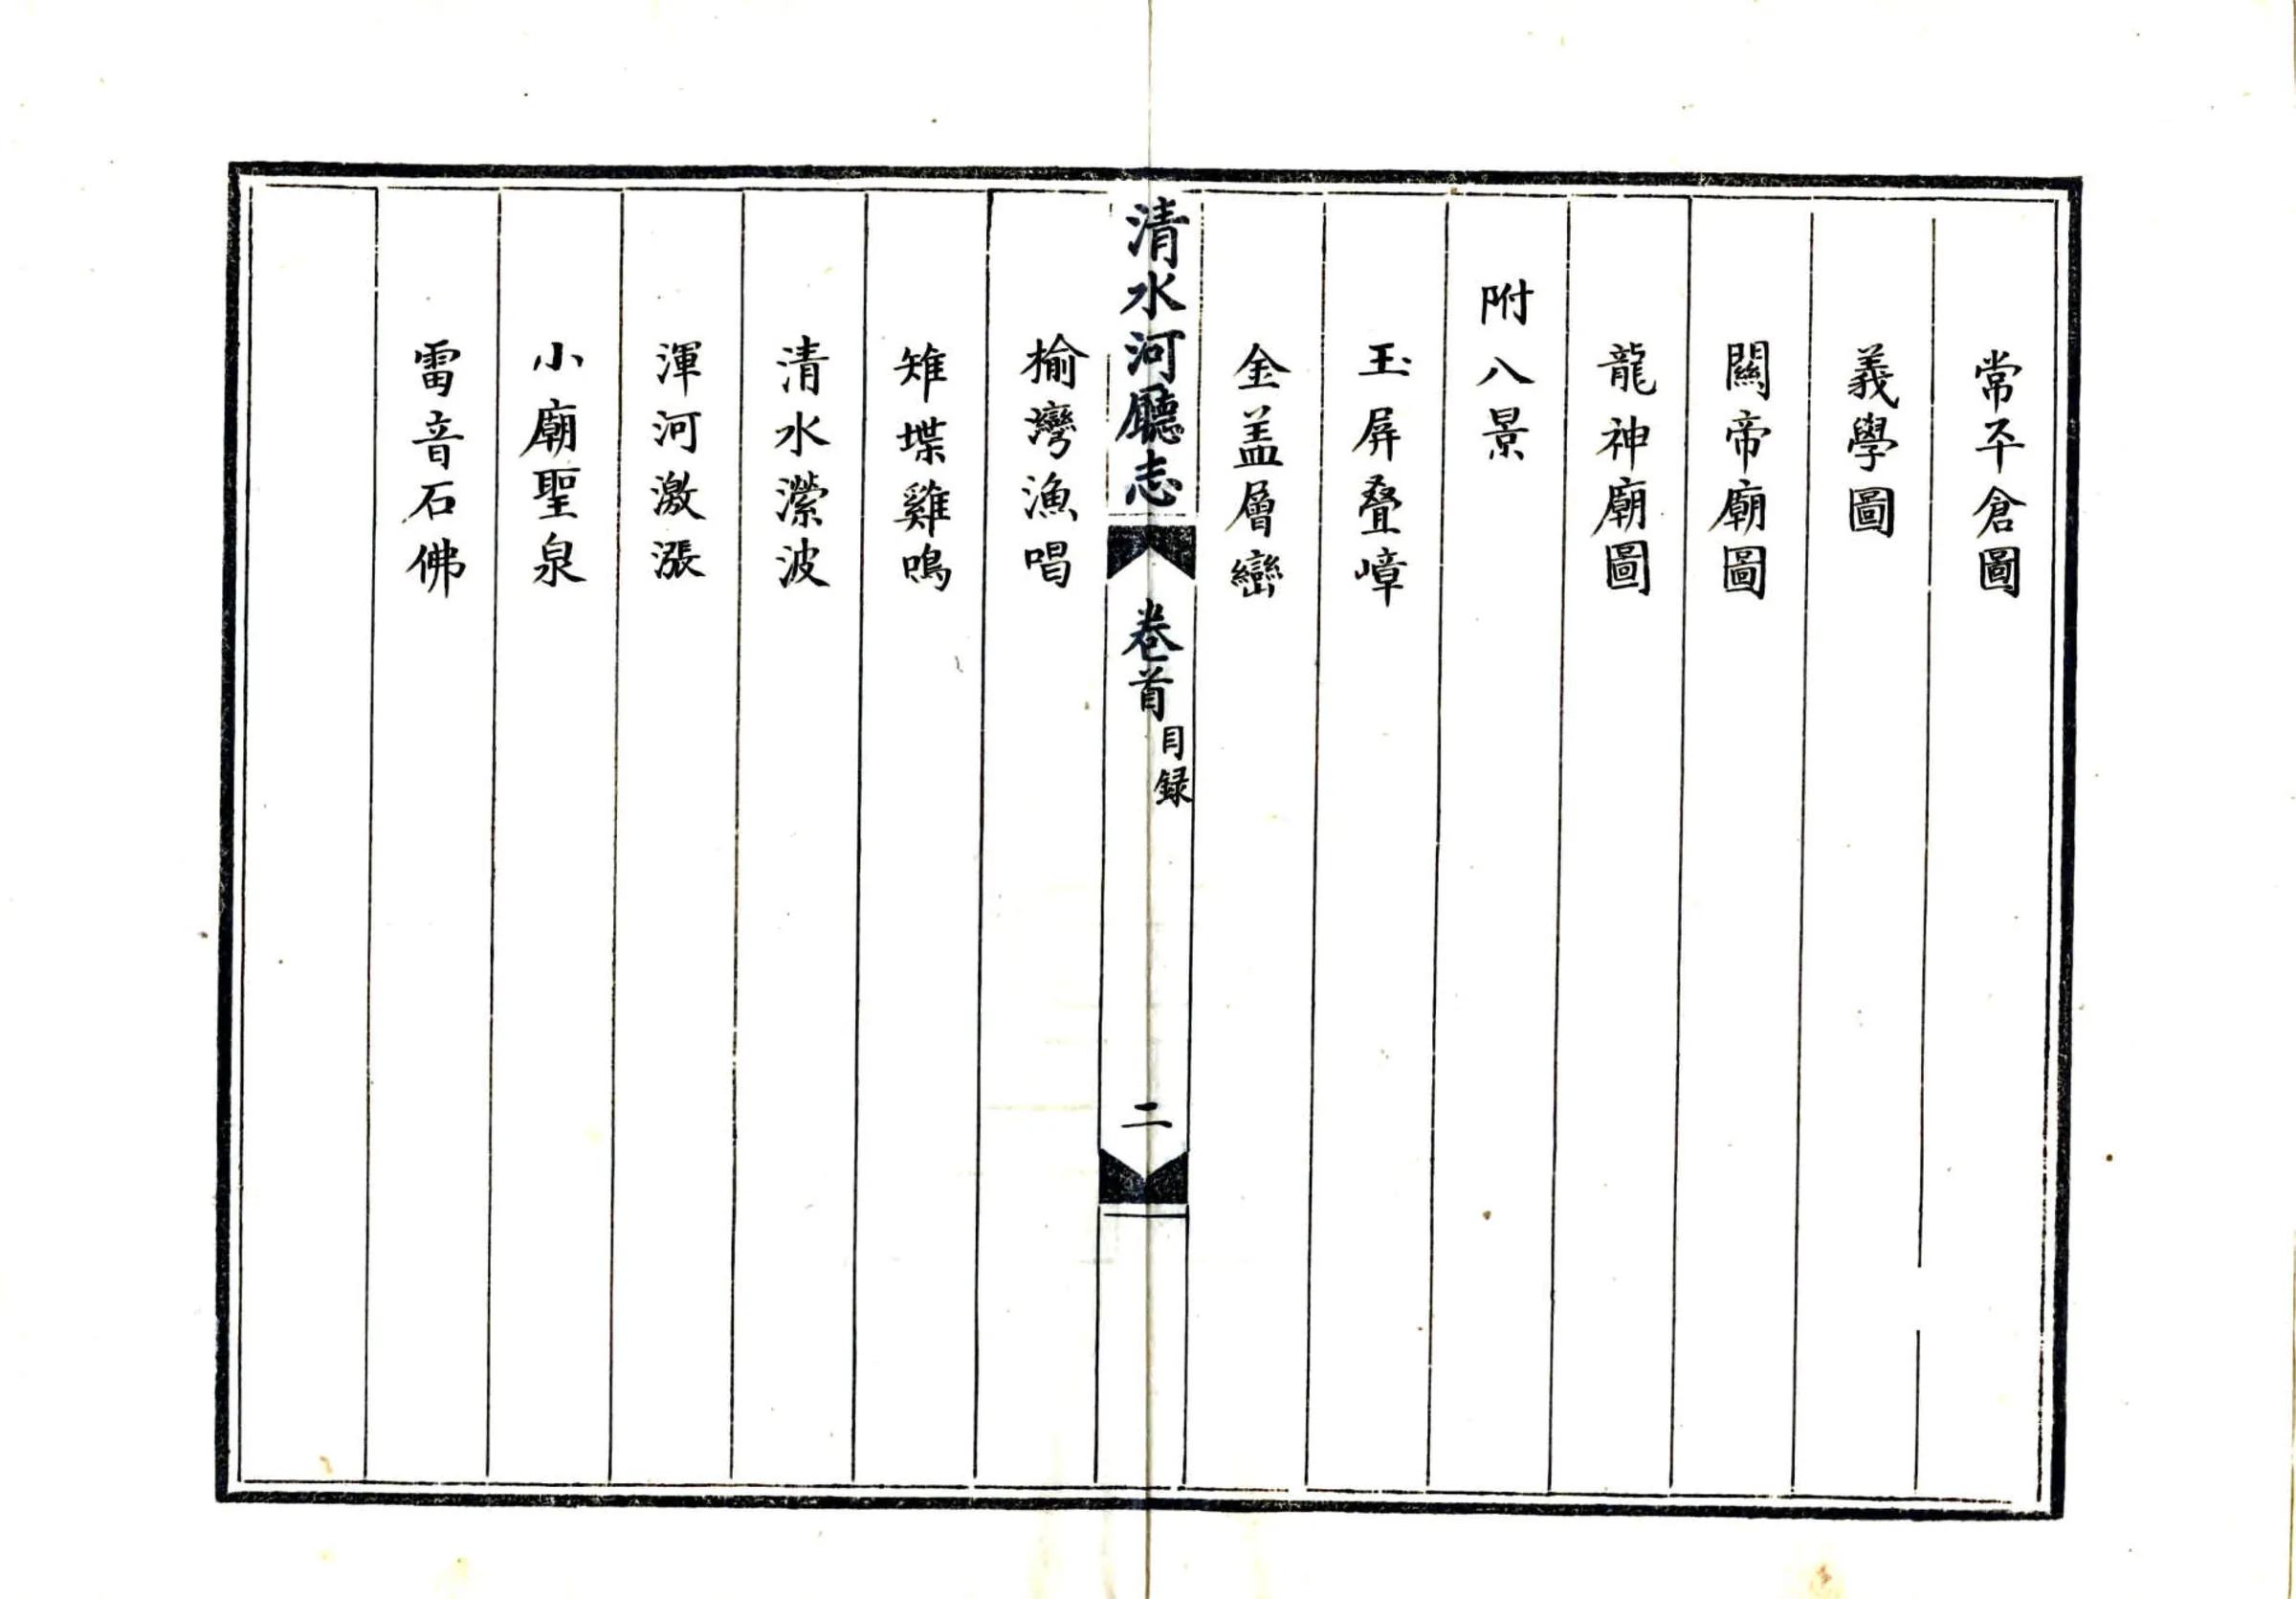 常平倉圖
義學圖
關帝廟圖
龍神廟圖
附八景
玉屏疊嶂
金盖層巒
清水河廳志
卷首
目録
二
榆灣漁唱
雉堞雞鳴
清水瀠波
渾河激漲
小廟聖泉
雷音石佛